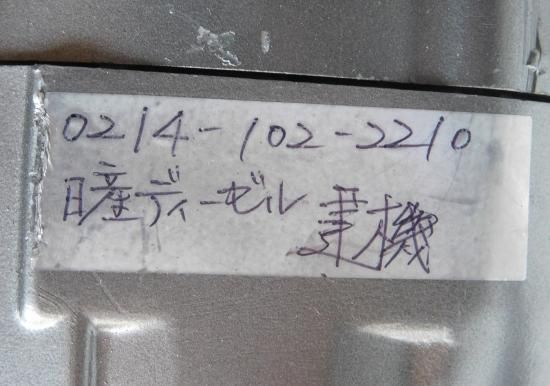 0214-102-2210
日産ディーゼル 機